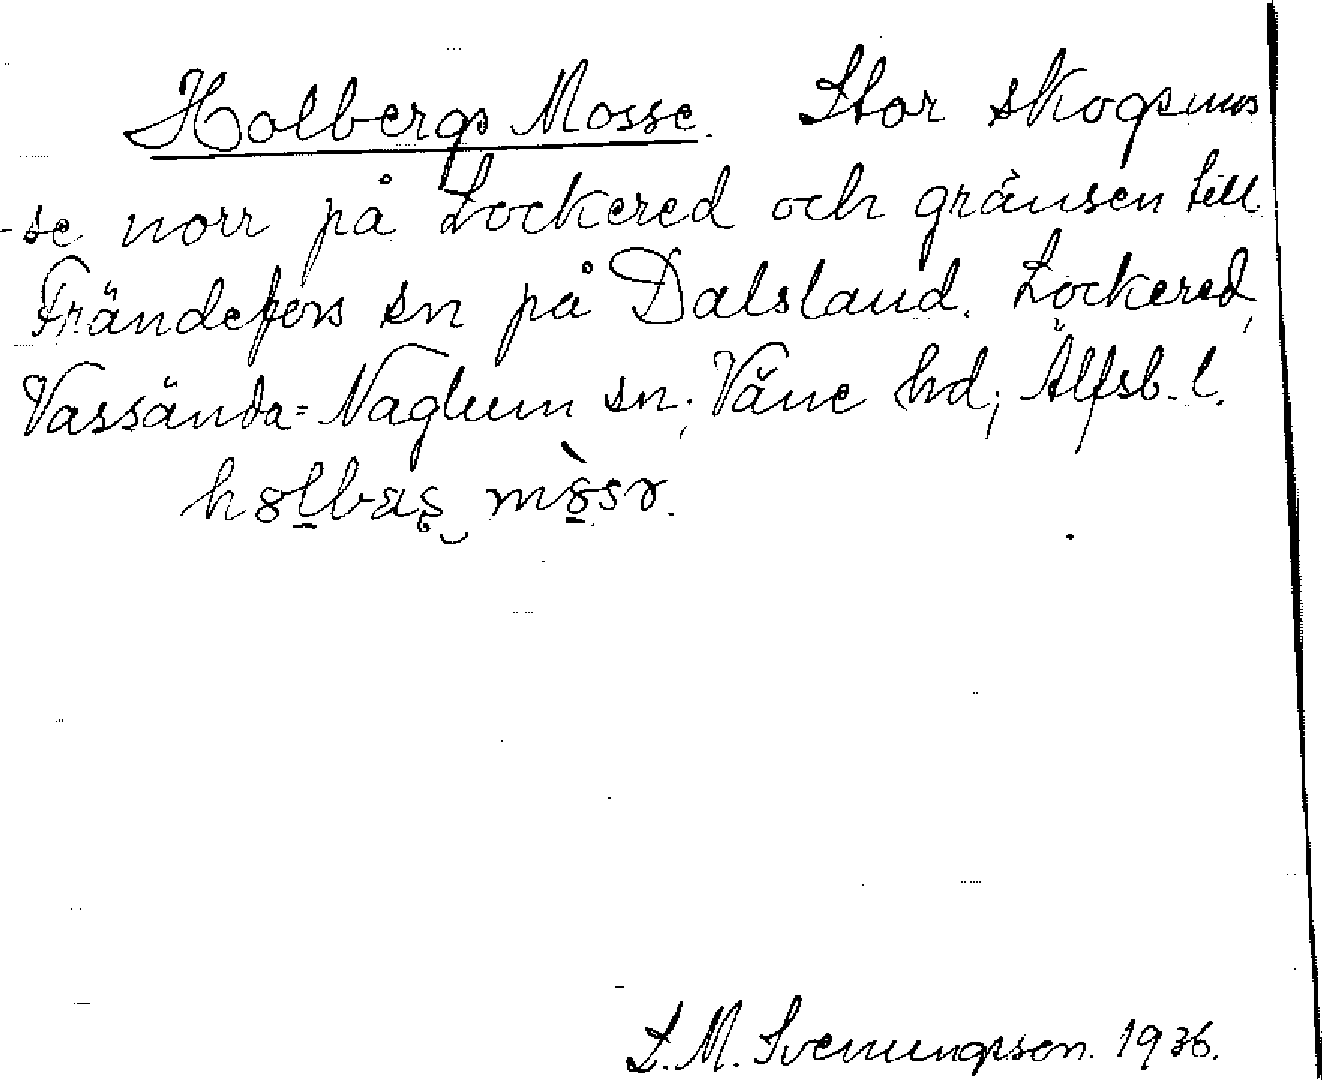 Holbergs Mosse. Stor skogsmos
-se norr på Lockered och gränsen till
Frändefors sn på Dalsland. Lockered,
Vassända=Naglum sn; Väne hd; Älfsb. l.
L. M. Svenungsson. 1936.